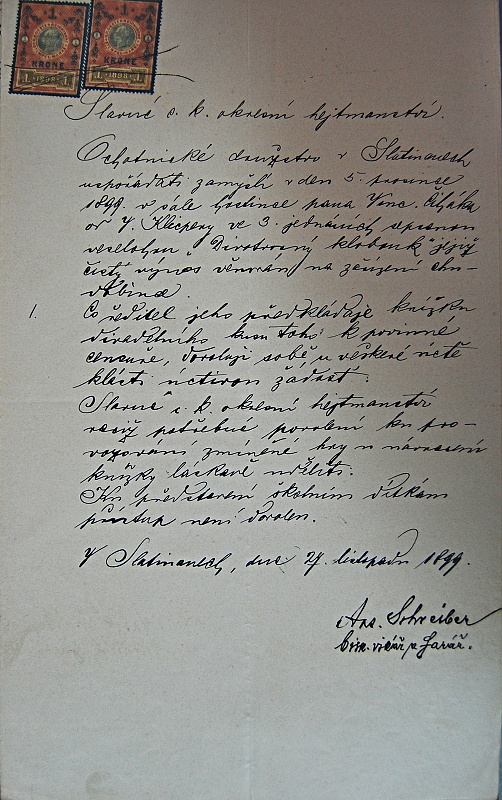 1 1
KRONE KRONE
1 1898 1 1 1898 1
Slavné c. k. okresní hejtmanství.
Ochotnické družstvo v Slatinanech
uspořádati zamýšlí v den 5. prosince
1899 v sále hostince pana Vinc.
od V. Klicpery ve 3. jednáních sepsanou
veselohru „Divotvorný klobouk" jejíž
čistý výnos věnován na zřízení chu-
dobince.
1.
Co ředitel jeho předkládaje knížku
divadelního kusu toho k povinné
censuře, dovoluji sobě u veškeré úctě
klásti uctivou žádost:
Slavné c. k. okresní hejtmanství
račiž potřebné povolení ku pro-
vozování zmíněné hry u navrácení
knížky láskavě uděliti.
Ku představení školním dítkám
přístup není dovolen.
V Slatinanech, dne 27. listopadu 1899.
Ant. Schreiber
vikář farář.